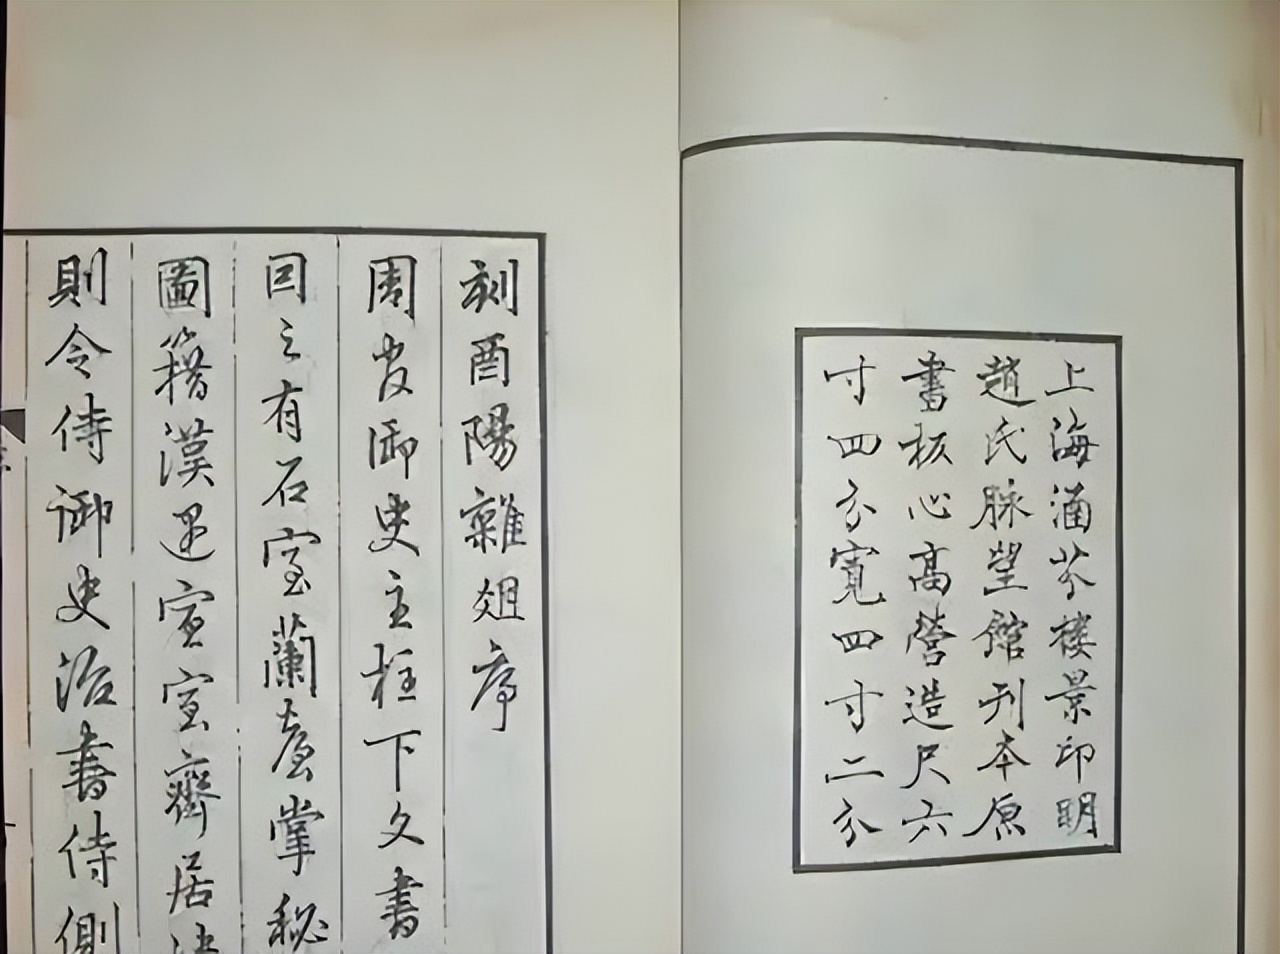 上海涵芬樓景印明
趙氏脉望館刊本原
書板心高營造尺六
寸四分寬四寸二分
刻酉陽雜俎序
周官御史主柱下文書
回之有石室蘭臺掌秘
圖籍漢還宣室齋居
則令侍御史治書侍側